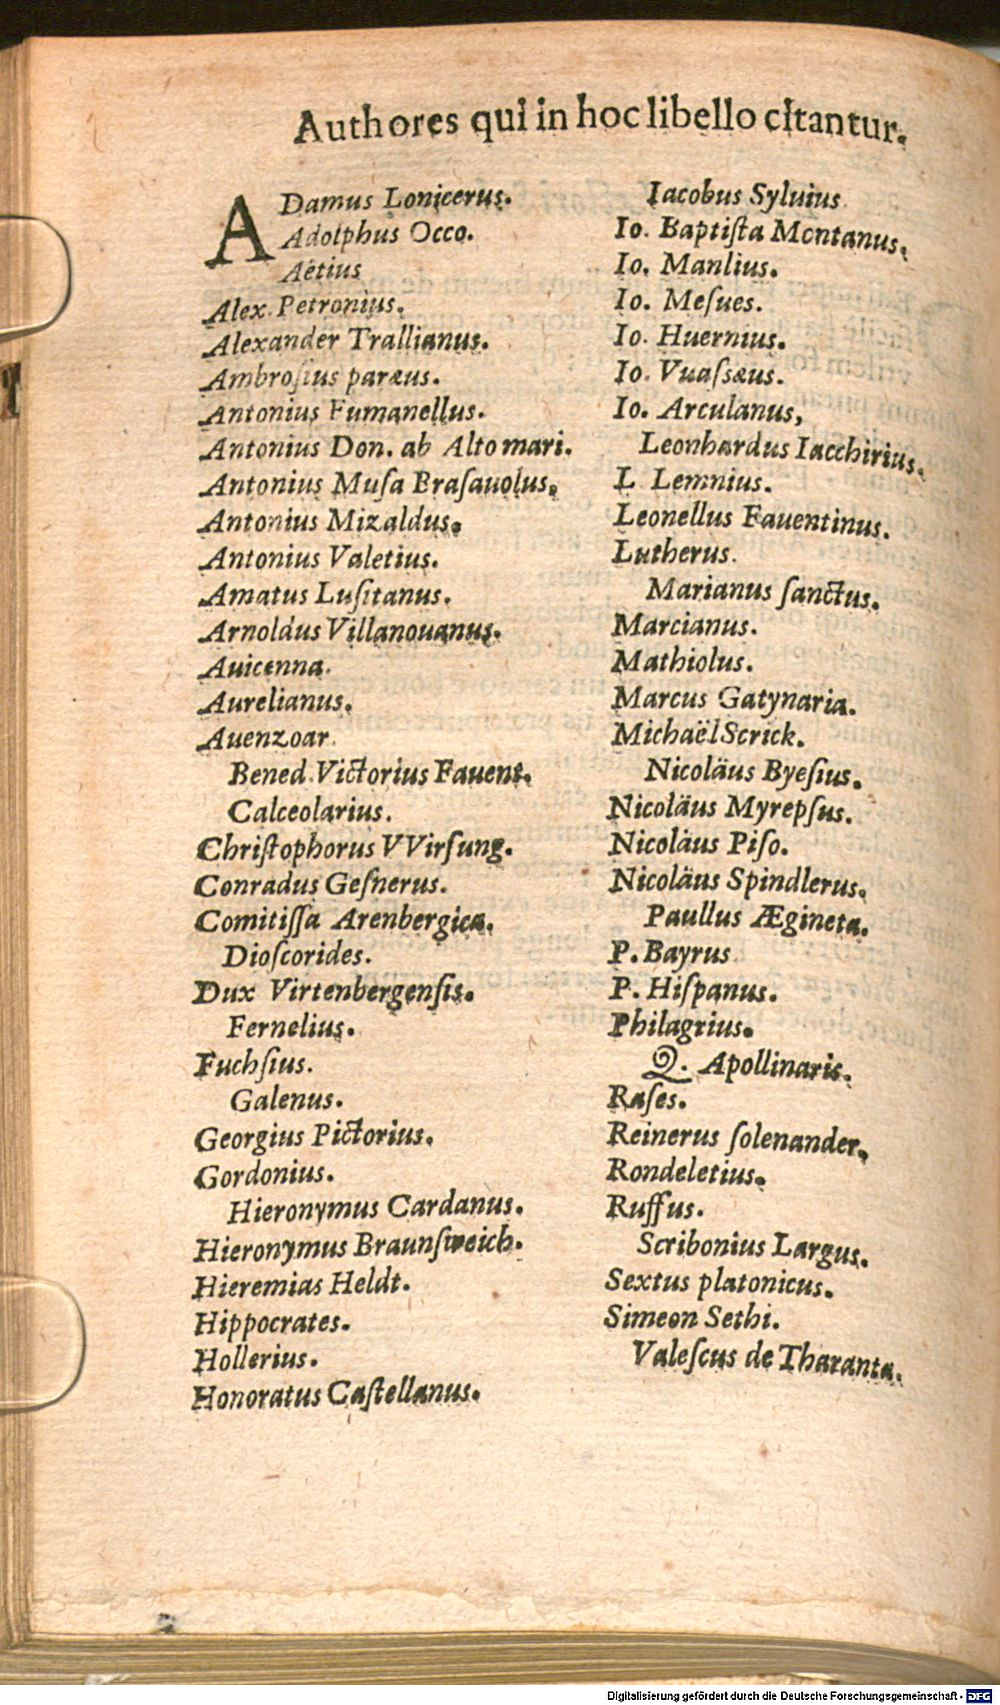 Authores qui in hoc libello citantur.
ADamus Lonicerus.
Adolphus Occo.
Aëtius
Alex. Petronius.
Alexander Trallianus.
Ambroſius paræus.
Antonius Fumanellus.
Antonius Don. ab Alto mari.
Antonius Muſa Braſauolus.
Antonius Mizaldus.
Antonius Valetius.
Amatus Luſitanus.
Arnoldus Villanouanus.
Auicenna.
Aurelianus.
Auenzoar.
Bened. Victorius Fauent.
Calceolarius.
Chriſtophorus VVirſung.
Conradus Geſnerus.
Comitiſſa Arenbergica.
Dioſcorides.
Dux Virtenbergenſis.
Fernelius.
Fuchſius.
Galenus.
Georgius Pictorius.
Gordonius.
Hieronymus Cardanus.
Hieronymus Braunſweich.
Hieremias Heldt.
Hippocrates.
Hollerius.
Honoratus Caſtellanus.
Iacobus Syluius
Io. Baptiſta Montanus.
Io. Manlius.
Io. Meſues.
Io. Huernius.
Io. Vuaſsæus.
Io. Arculanus,
Leonhardus Iacchirius.
L Lemnius.
Leonellus Fauentinus.
Lutherus.
Marianus ſanctus.
Marcianus.
Mathiolus.
Marcus Gatynaria.
Michaël Scrick.
Nicoläus Byeſius.
Nicoläus Myrepſus.
Nicoläus Piſo.
Nicoläus Spindlerus.
Paullus Ægineta.
P. Bayrus
P. Hiſpanus.
Philagrius.
Q. Apollinaris.
Raſes.
Reinerus ſolenander.
Rondeletius.
Ruffus.
Scribonius Largus.
Sextus platonicus.
Simeon Sethi.
Valeſcus de Tharanta.
Digitalisierung gefördert durch die Deutsche Forschungsgemeinschaft - DFG